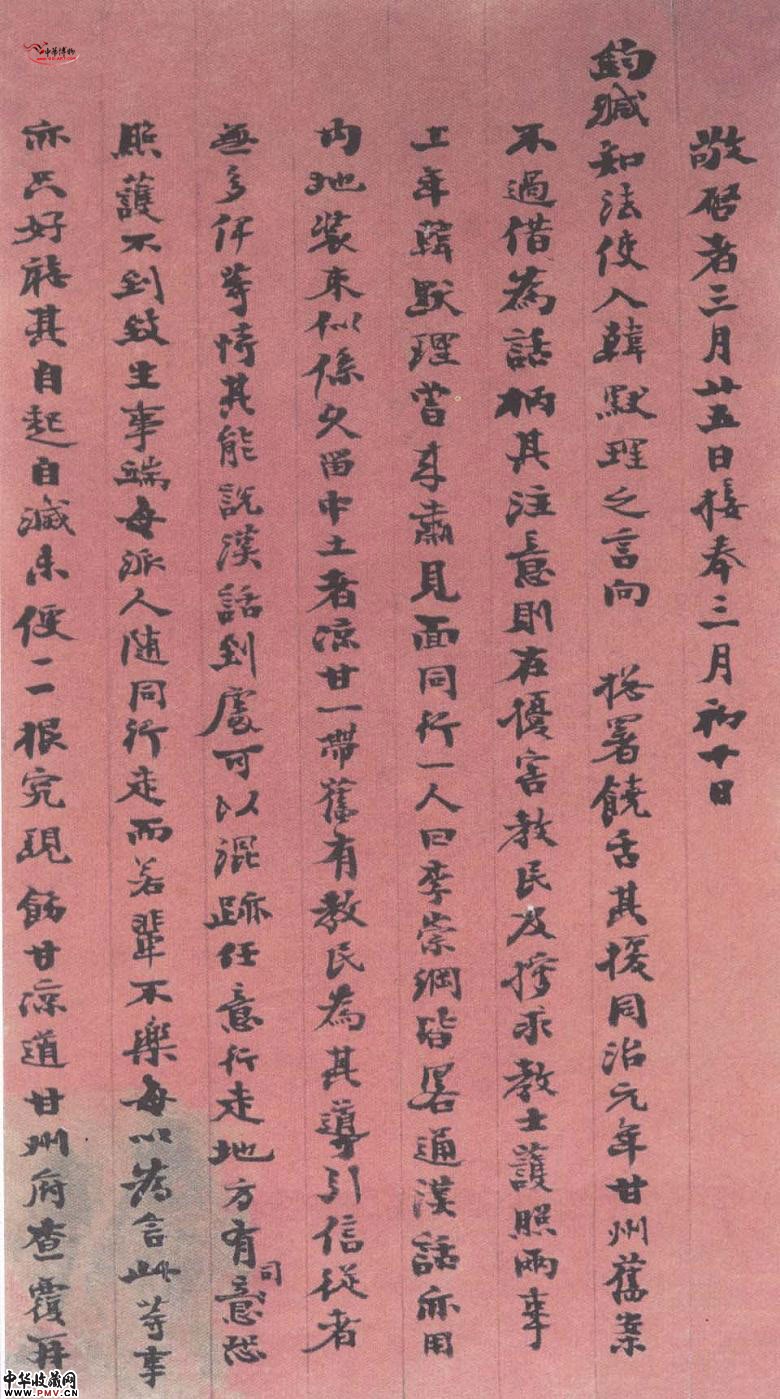 敬啓者三月廿五日接奉三月初十日
鈞緘知法使入韓默理之言向 總署饒舌其援同治元年甘州舊案
不過借為話柄其注意則在擾害教民及撐求教士護照兩事
上年韓默理嘗來肅見面同行一人曰李崇綱皆畧通漢話亦用
內地裝束似係久畱中土者涼甘一帶舊有教民為其導引信從者
無多伊等恃其能説漢話到處可以混跡任意行走地方有司意恐
照護不到致生事端每派人随同行走而若輩不樂每以為言此等事
亦只好聽其自起自滅未便一一根究現飭甘涼道甘州府查覆再
中華博物
中华收藏网
www.PMV.CN